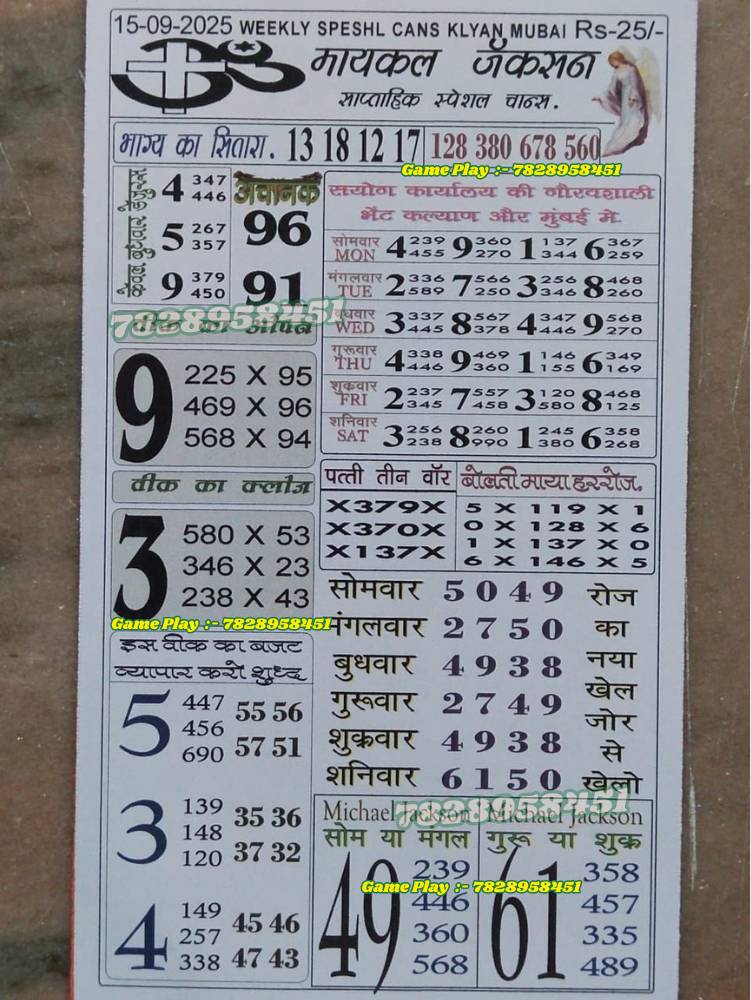 15-09-2025 WEEKLY SPESHL CANS KLYAN MUBAI Rs-25/-
मायकल जॅकसन
साप्ताहिक स्पेशल चान्स.
भाग्य का सितारा. 13 18 12 17 128 380 678 560
Game Play :- 7828958451
4 347 446
5 267 357
9 379 450
अचानक
96
91
सयोग कार्यालय की गौरवशाली
भेंट कल्याण और मुंबई मे.
सोमवार MON 4 239 455 9 360 270 1 137 344 6 367 259
मंगलवार TUE 2 336 589 7 566 250 3 256 346 8 468 260
बुधवार WED 3 337 445 8 567 378 4 347 446 9 568 270
गुरूवार THU 4 338 446 9 469 360 1 146 155 6 349 169
शुक्रवार FRI 2 237 345 7 557 458 3 120 580 8 468 125
शनिवार SAT 3 256 238 8 260 990 1 245 380 6 358 268
7828958451
वीक का ओपन
9
225 X 95
469 X 96
568 X 94
वीक का क्लोज
3
580 X 53
346 X 23
238 X 43
Game Play :- 7828958451
पत्ती तीन वॉर
X379X
X370X
X137X
बोलती माया हररोज.
5 X 119 X 1
0 X 128 X 6
1 X 137 X 0
6 X 146 X 5
सोमवार 5 0 4 9
मंगलवार 2 7 5 0
बुधवार 4 9 3 8
गुरूवार 2 7 4 9
शुक्रवार 4 9 3 8
शनिवार 6 1 5 0
रोज
का
नया
खेल
जोर
से
खेलो
इस वीक का बजट
व्यापार करो शुध्द
5
447 55 56
456
690 57 51
3
139 35 36
148
120 37 32
4
149 45 46
257
338 47 43
Michael Jackson. Michael Jackson
7828958451
सोम या मंगल गुरू या शुक्र
49
239
446
360
568
Game Play :- 7828958451
61
358
457
335
489